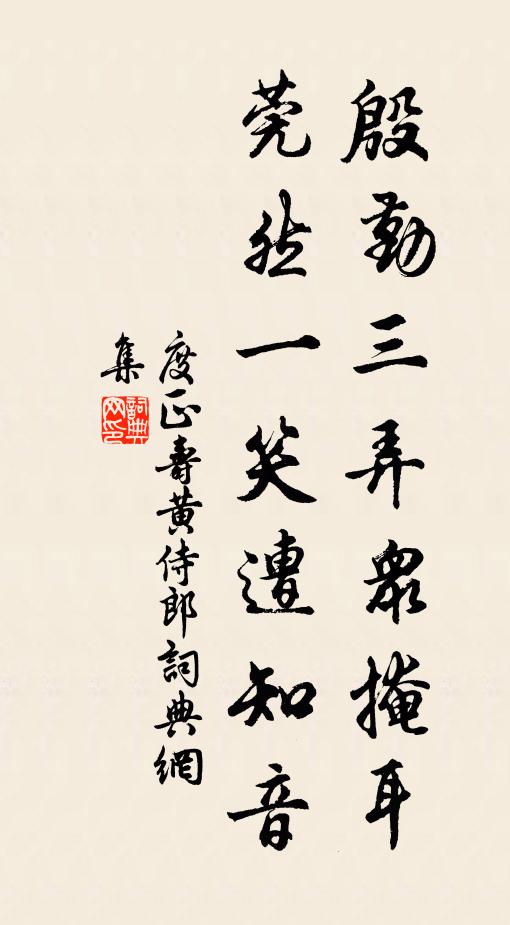 殷勤三弄衆掩耳
莞然一笑遭知音
度正壽黃侍郎詞典網
集
詞典網印